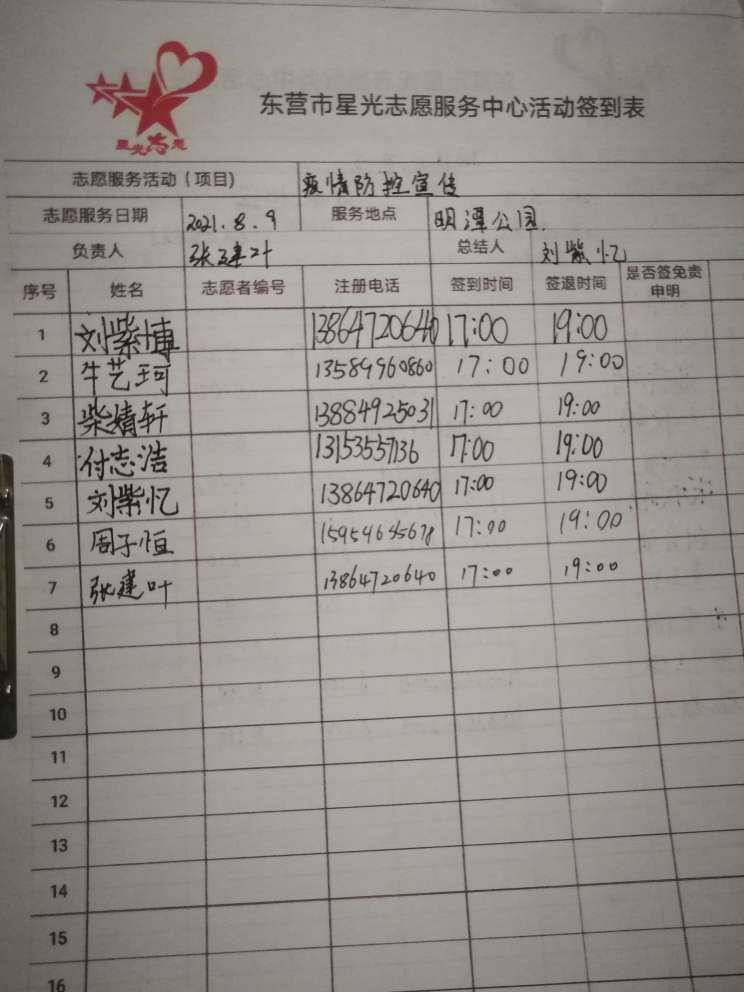 星光志愿
东营市星光志愿服务中心活动签到表
志愿服务活动（项目） 疫情防控宣传
志愿服务日期 2021.8.9 服务地点 明潭公园.
负责人 张建叶 总结人 刘紫忆
序号 姓名 志愿者编号 注册电话 签到时间 签退时间 是否签免责申明
1 刘紫博 13864720640 17:00 19:00
2 牛艺珂 13589960860 17:00 19:00
3 柴婧轩 13884925031 17:00 19:00
4 付志浩 13153557136 17:00 19:00
5 刘紫忆 13864720640 17:00 19:00
6 周子恒 17:00 19:00
7 张建叶 13864720640 17:00 19:00
8
9
10
11
12
13
14
15
16